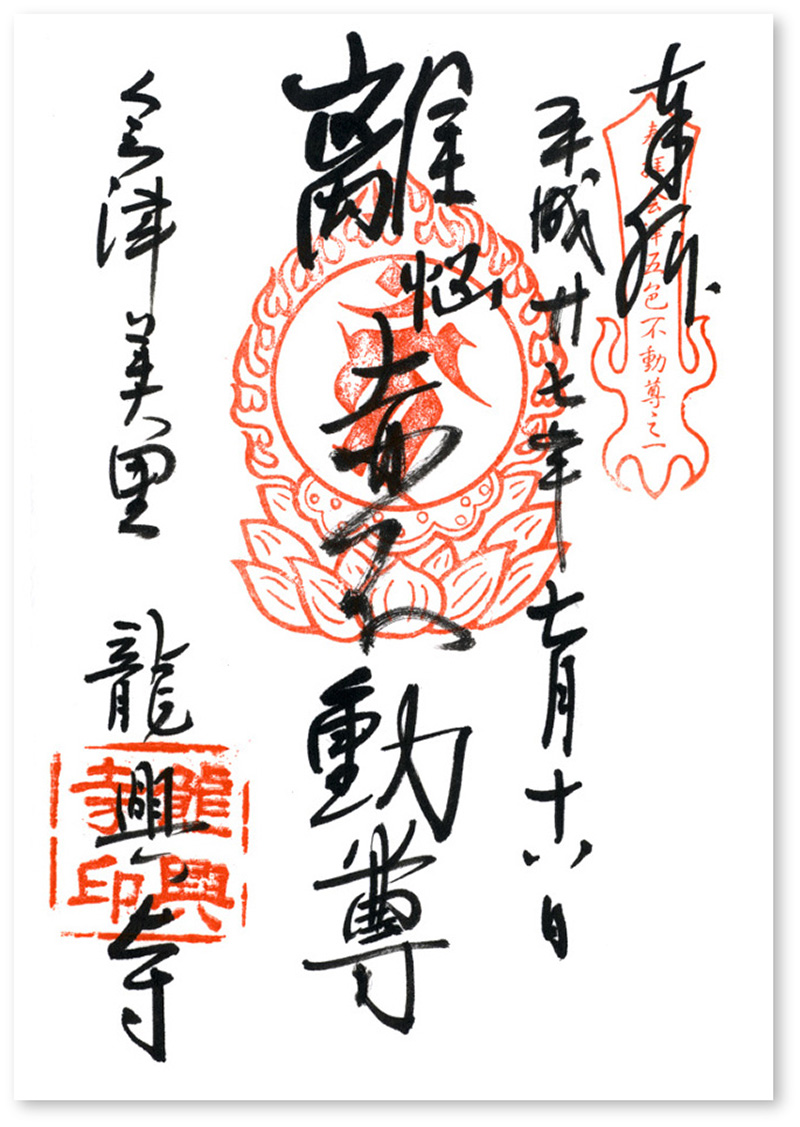 奉拝
奉拝会津五色不動尊之一
平成廿七年七月十八日
離悩赤不動尊
会津美里 龍興寺
龍興
寺印